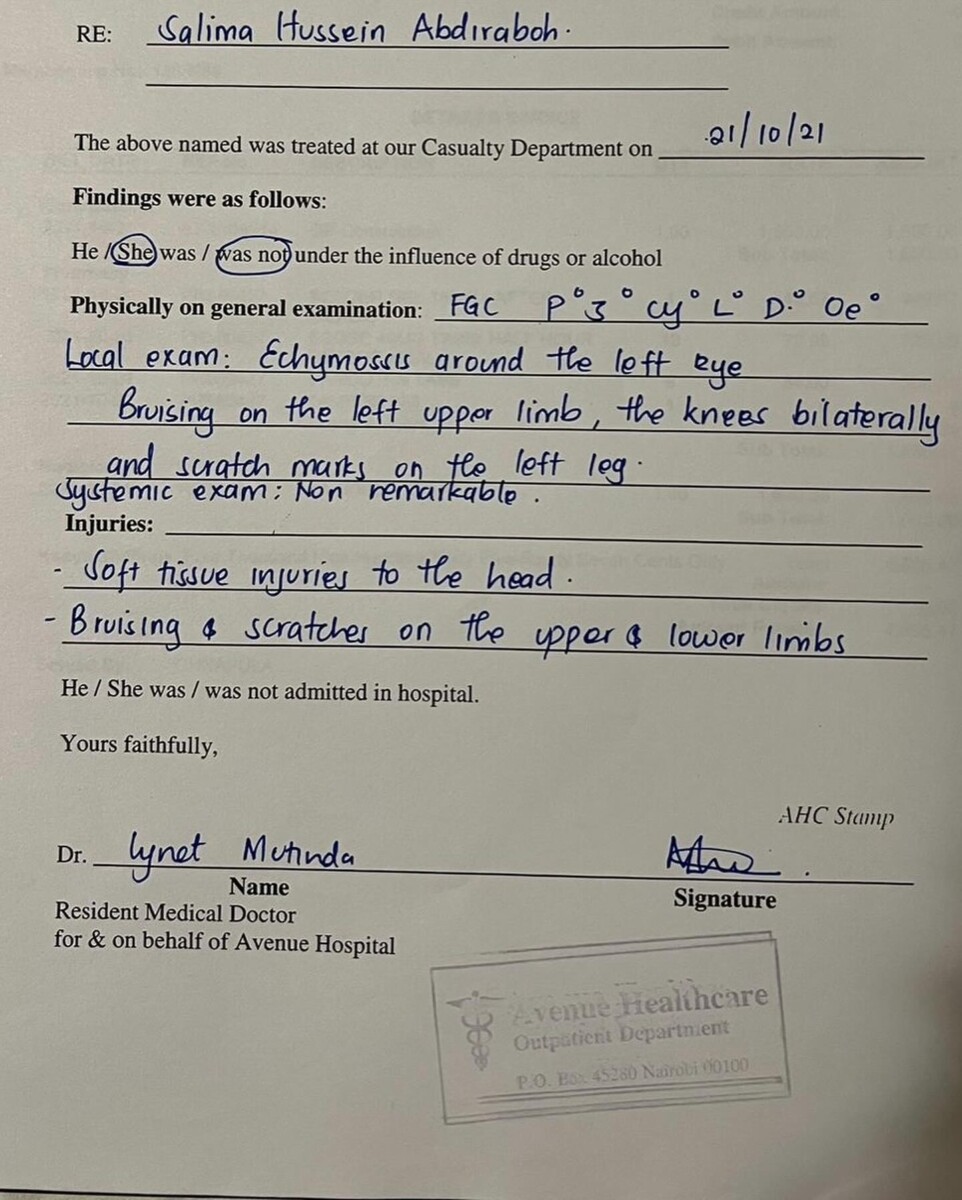 RE: Salima Hussein Abdiraboh.
The above named was treated at our Casualty Department on 21/10/21
Findings were as follows:
He / She was / was not under the influence of drugs or alcohol
Physically on general examination: FGC P° 3° cy° L° D.° Oe°
Local exam: Echymossis around the left eye
Bruising on the left upper limb, the knees bilaterally
and scratch marks on the left leg.
Systemic exam: Non remarkable.
Injuries:
- Soft tissue injuries to the head.
- Bruising & scratches on the upper & lower limbs
He / She was / was not admitted in hospital.
Yours faithfully,
AHC Stamp
Dr. Lynet Mutinda
Name
Signature
Resident Medical Doctor
for & on behalf of Avenue Hospital
Avenue Healthcare
Outpatient Department
P.O. Box 45280 Nairobi 00100